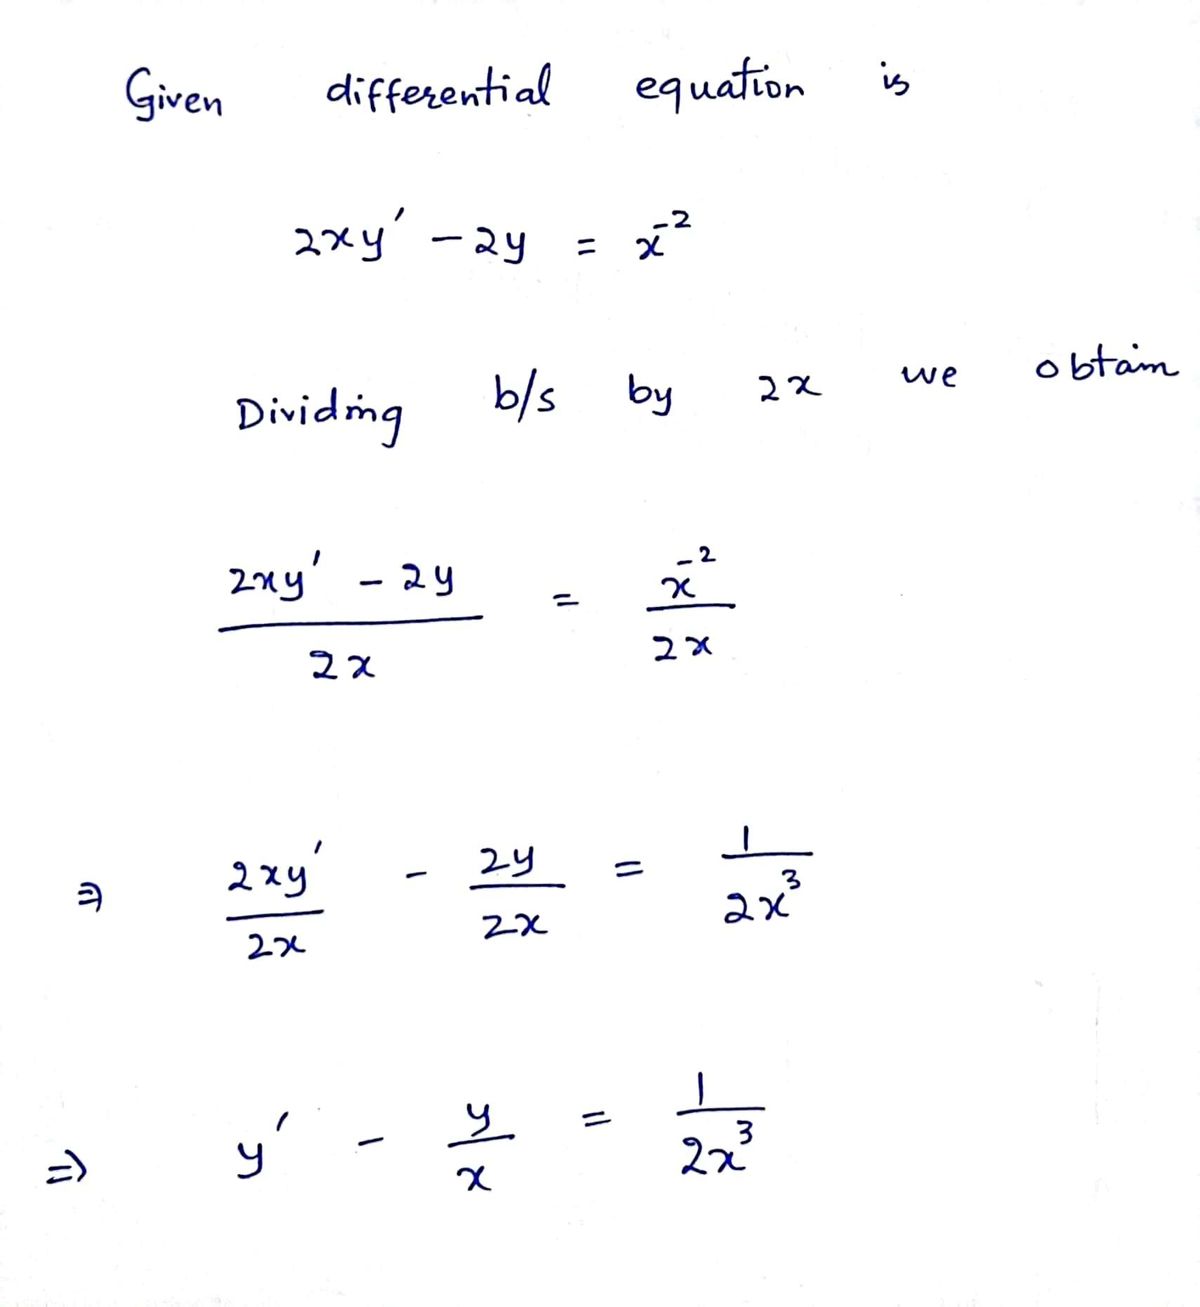 Given differential equation is
2xy′ - 2y = x⁻²
Dividing b/s by 2x we obtain
(2xy′ - 2y)/(2x) = x⁻²/(2x)
⇒ 2xy′/2x - 2y/2x = 1/(2x³)
⇒ y′ - y/x = 1/(2x³)